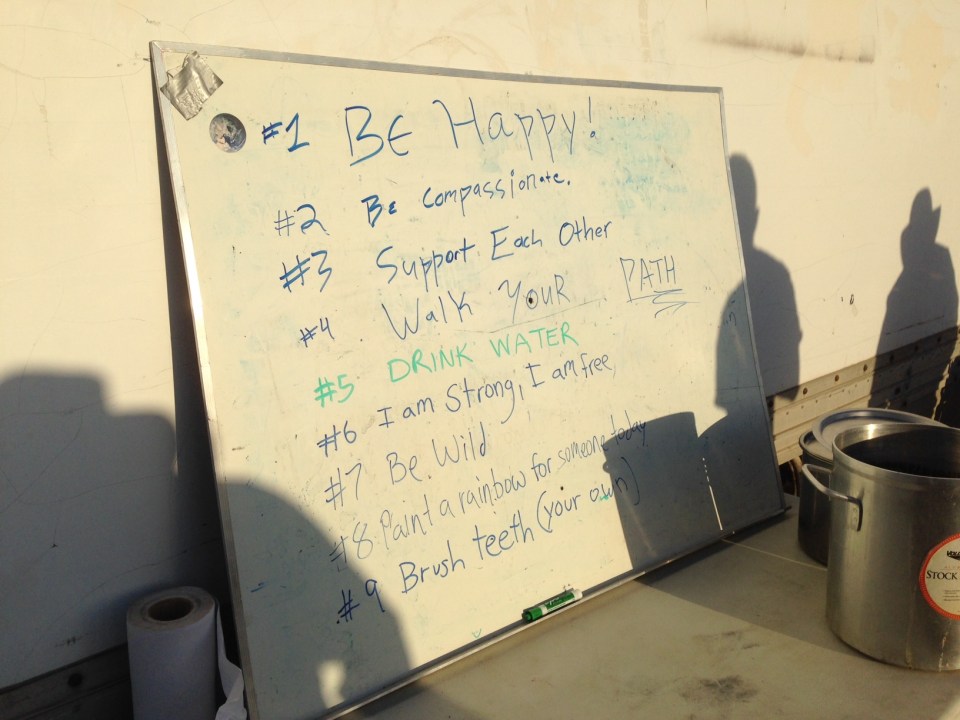 #1 BE Happy!
#2 Be Compassionate.
#3 Support Each Other
#4 Walk YOUR PATH
#5 DRINK WATER
#6 I am Strong, I am free
#7 Be Wild
#8 Paint a rainbow for someone today
#9 Brush teeth (your own)
STOCK